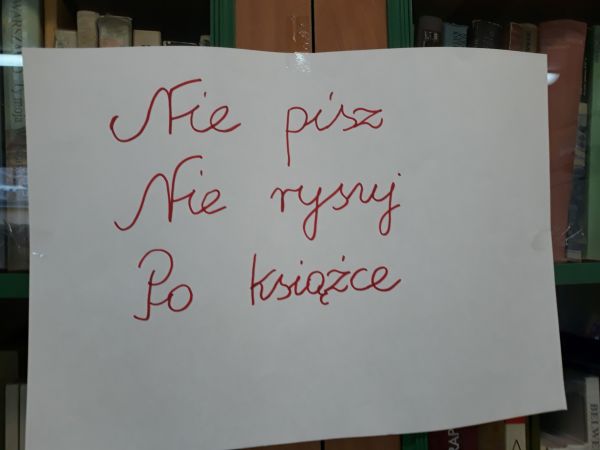 Nie pisz
Nie rysuj
Po książce